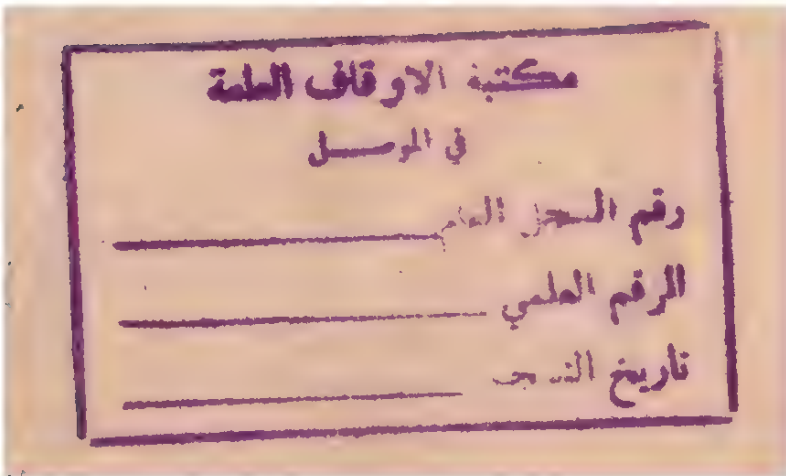 مكتبة الاوقاف العامة
في الموصل
رقم السجل العام
الرقم العلمي
تاريخ